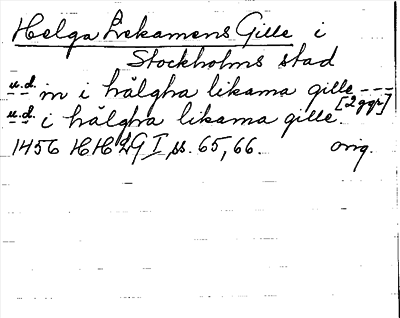 Helga Lekamens Gille i
Stockholms stad
u.d. in i hälgha likama gille ---
[2 ggr]
u.d. i hälgha likama gille.
1456 HHLG I, ss. 65, 66. orig.